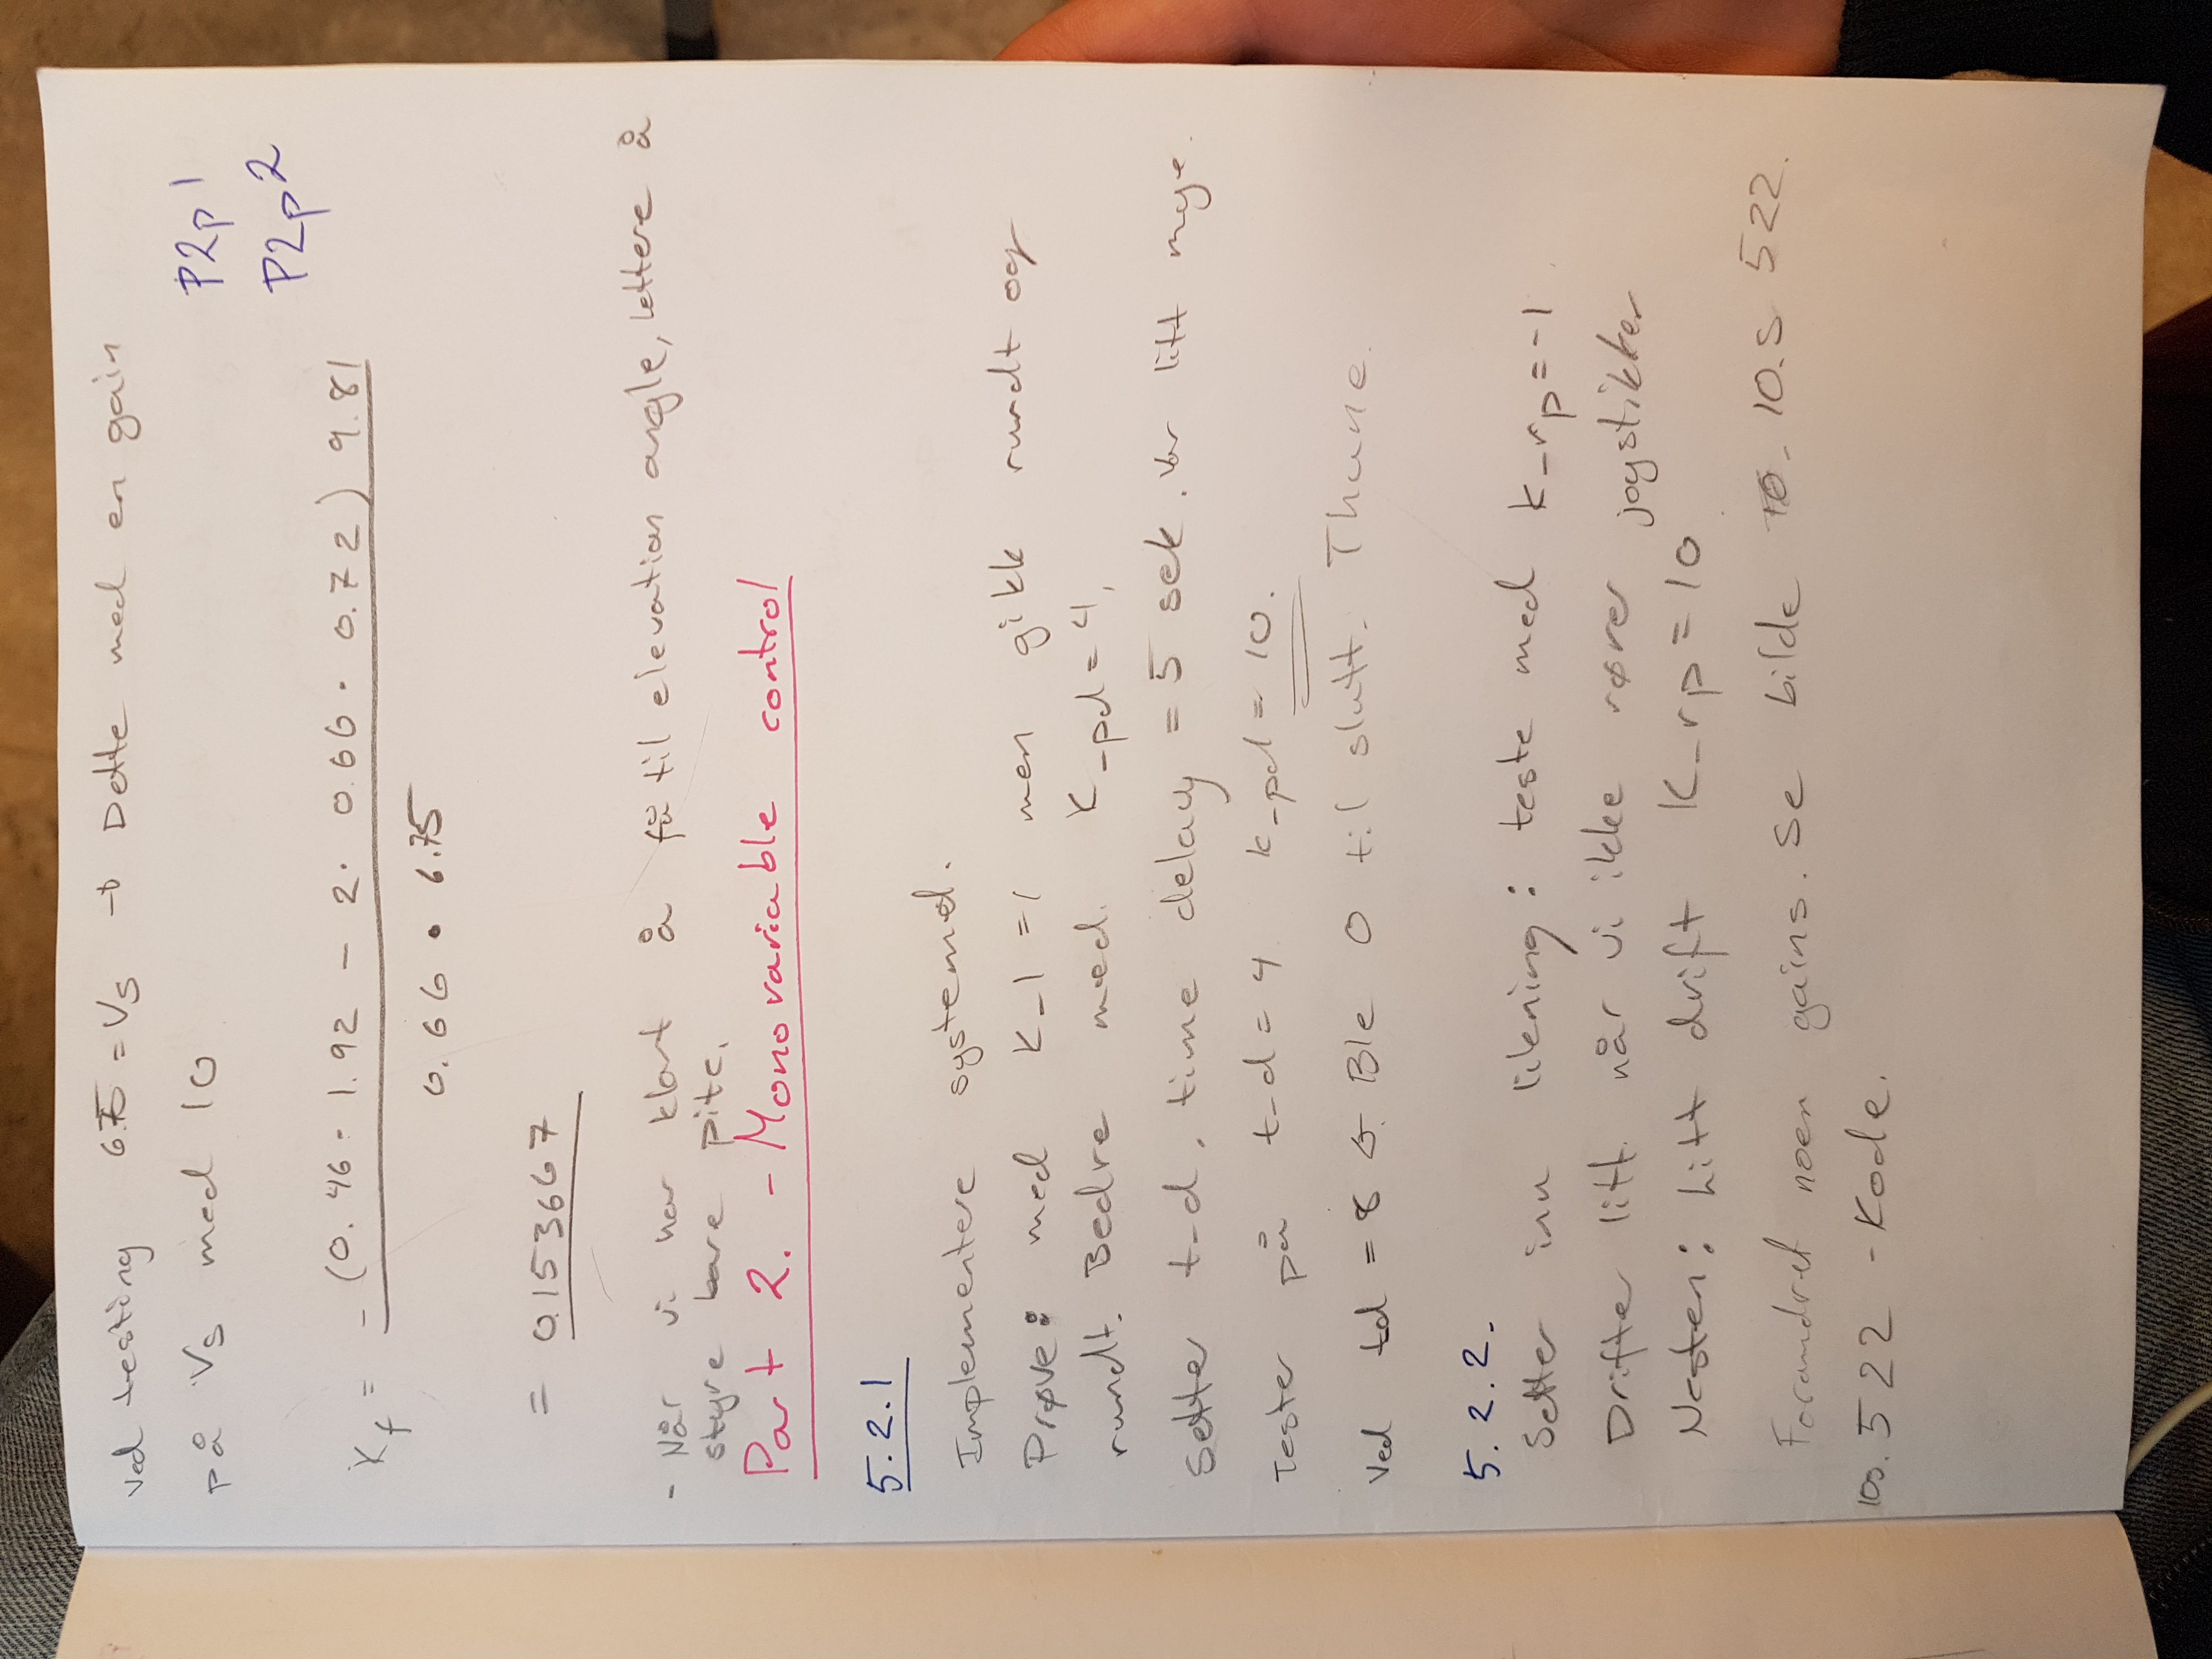 Ved testing 6.75 = Vs → Dette med en gain
på Vs med 10
P2p1
P2p2
Kf = -(0.46 · 1.92 - 2 · 0.66 · 0.72) 9.81
0.66 · 6.75
= 0.153667
- Når vi har klart å få til elevation angle, lettere å
styre bare pitc.
Part 2. - Monovariable control
5.2.1
Implementere systemet.
Prøve: med K_1 = 1 men gikk rundt og
rundt. Bedre med K_pd = 4,
Setter t_d, time delay = 5 sek. Var litt mye.
Tester på t_d = 4 k_pd = 10.
Ved td = 8 ← Ble 0 til slutt. Thune.
5.2.2.
Setter inn likning: teste med k_rp = -1
Drifter litt når vi ikke rører joystikker
Nesten: Litt drift K_rp = 10
Forandret noen gains. Se bilde 10.s 522.
10s. 522 - Kode.